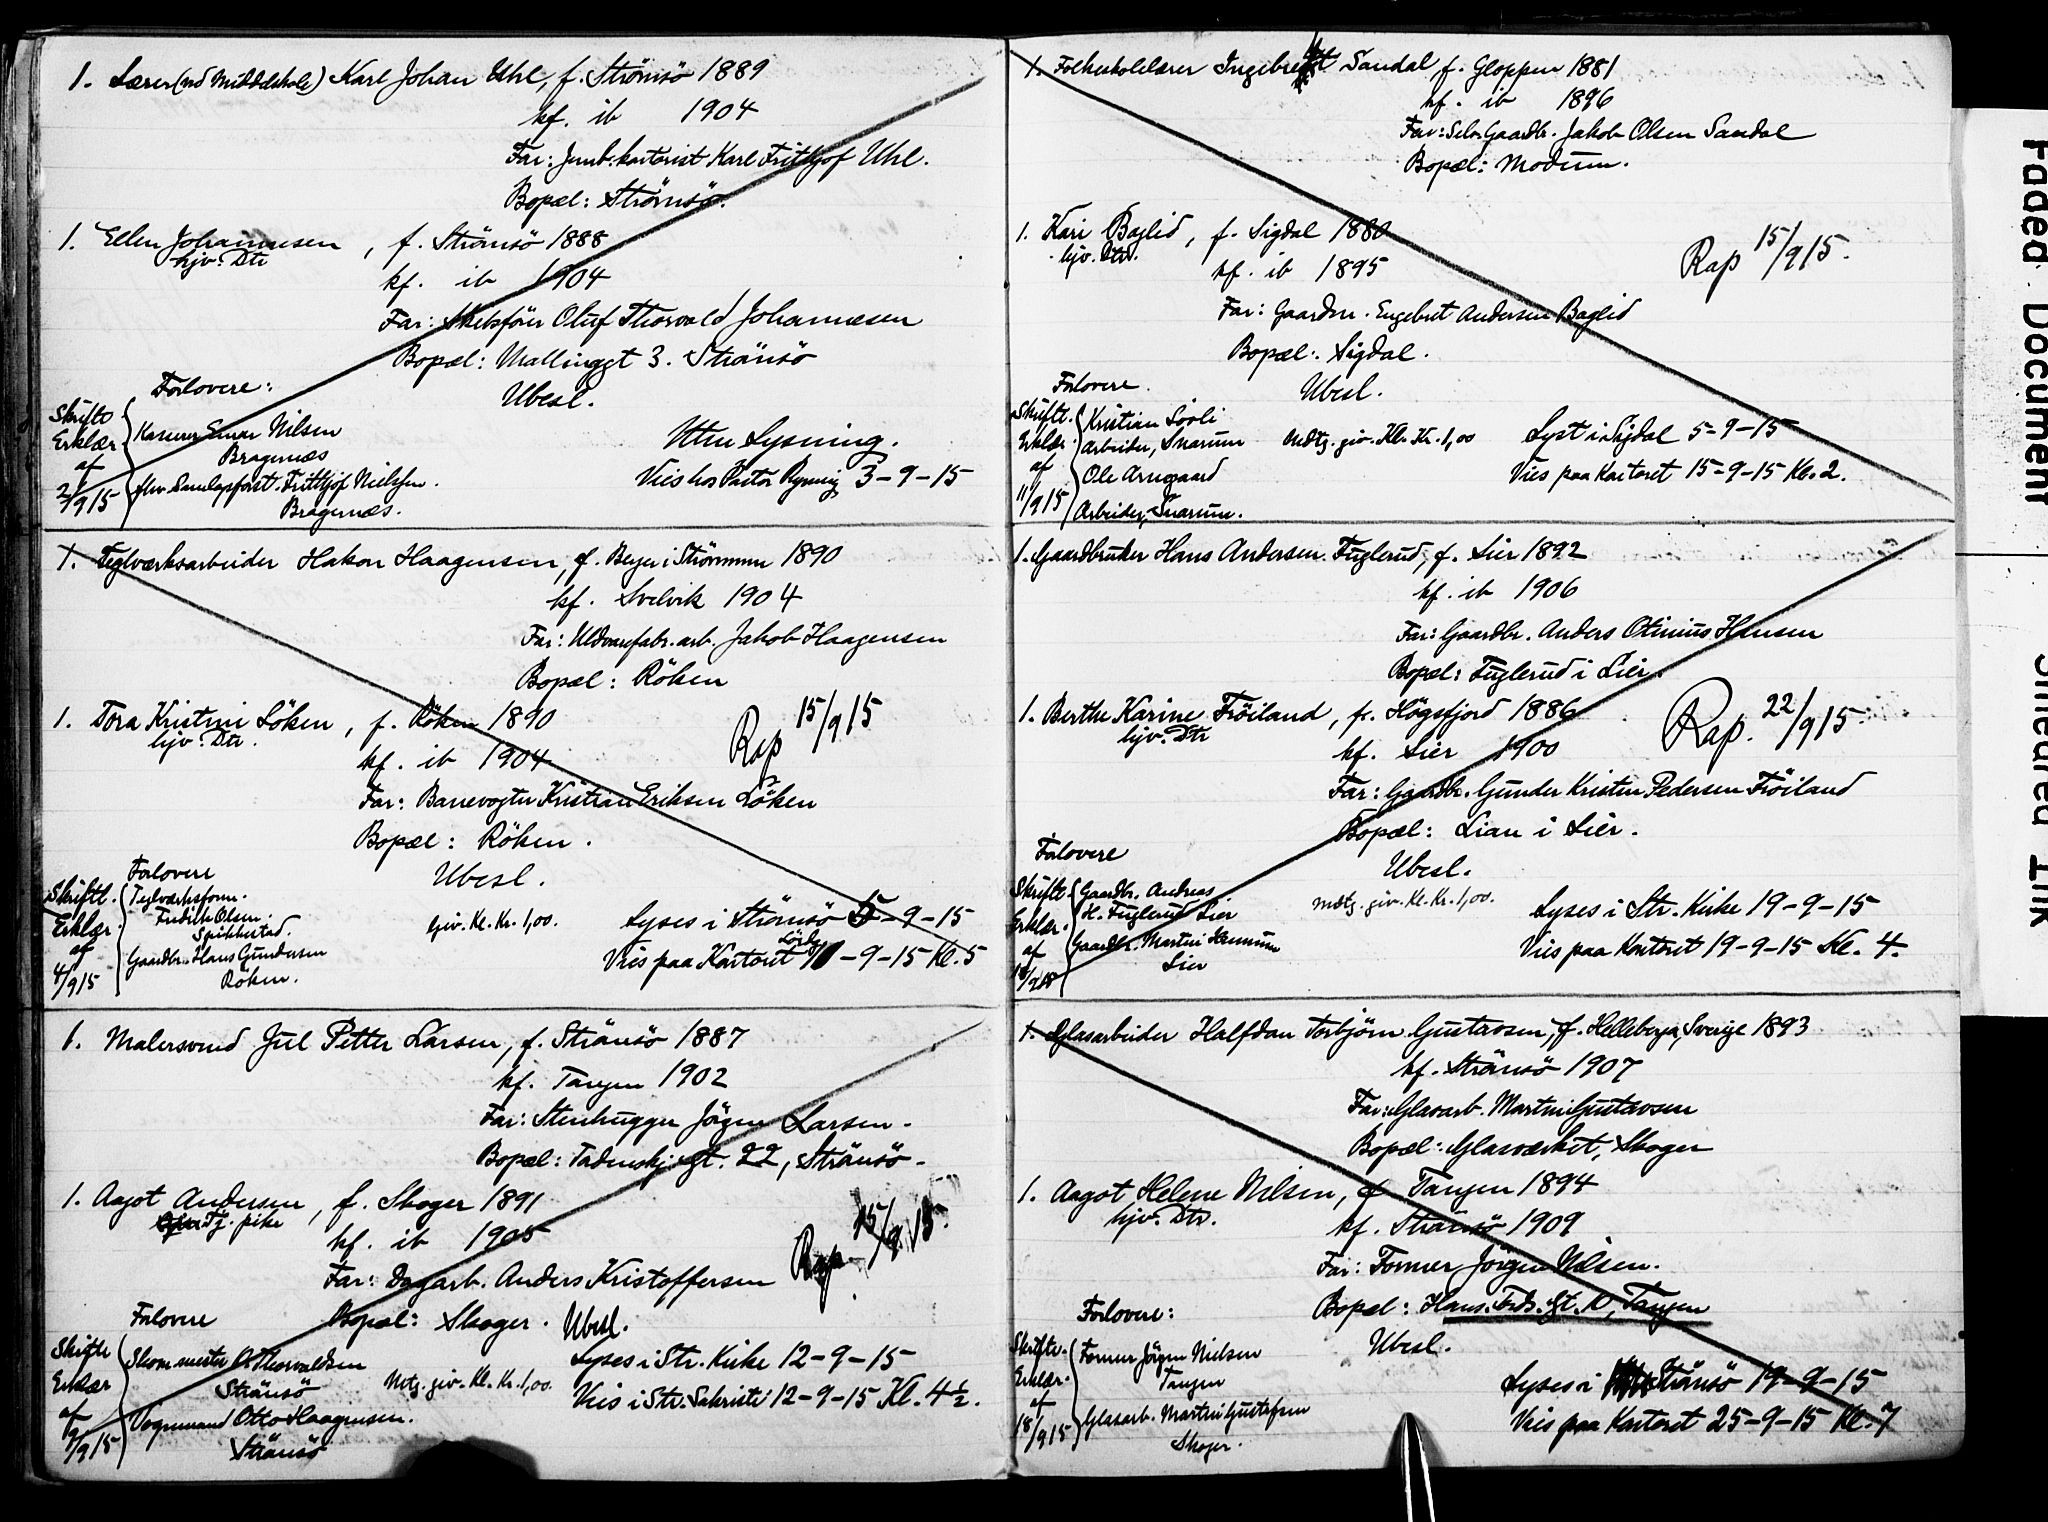 1. Lærer (ved Middelskole) Karl Johan Uhl, f. Strömsö 1889
kf. ib 1904
Far: Jernb.kontorist Karl Frithjof Uhl.
Bopæl: Strömsö.
1. Ellen Johannesen, f. Strömsö 1888
hjv. Dtr
kf. ib 1904
Far: Skibsförer Oluf Thorvald Johannesen
Bopæl: Mallinggt 3. Strömsö
Forlovere:
Ubesl.
Skriftl. Erklær. af 2/9 15
Kasserer Einar Nilsen
Bragernæs
Frithjof Nielsen.
Bragernæs.
Uten Lysning.
Vies hos Pastor Ryning 3-9-15
1. Teglværksarbeider Hakon Haagensen, f. Berger i Strömmen 1890
kf. Svelvik 1904
Far: Uldvarefabr.arb. Jakob Haagensen
Bopæl: Röken
1. Tora Kristine Löken, f. Röken 1890
hjv. Dtr.
kf. ib 1904
Rap 15/9 15
Far: Banevogter Kristian Eriksen Löken
Bopæl: Röken.
Forlovere
Ubesl.
Skriftl. Erklær. af 4/9 15
Teglværksform.
Fredrik Olsen.
Spikkestad.
Gaardbr. Hans Gundersen
Röken.
giv. Kl. Kr. 1,00.
Lyses i Strömsö 5-9-15
Lörd.
Vies paa Kontoret 11-9-15 Kl. 5
1. Malersvend Jul Petter Larsen, f. Strömsö 1887
kf. Tangen 1902
Far: Stenhugger Jörgen Larsen.
Bopæl: Tordenskj. gt. 22, Strömsö.
1. Aagot Andersen, f. Skoger 1891
Tj. pike
kf. ib 1905
Rap 15/9 15.
Far: Dagarb. Anders Kristoffersen
Forlovere
Bopæl: Skoger. Ubesl.
Skriftl Erklær af 7/9 15
Skom.mester O. Thorvaldsen
Strömsö
Vognmand Otto Haagensen.
Strömsö
Motg. giv. Kl. Kr. 1,00.
Lyses i Str. Kirke 12-9-15
Vies i Str. Sakristi 12-9-15 Kl. 4½.
1. Folkeskolelærer Ingebregt Sandal f. Gloppen 1881
kf. ib 1896
Far: Selv.Gaardbr. Jakob Olsen Sandal
Bopæl: Modum.
1. Kari Baglid, f. Sigdal 1880
hjv. Dtr.
kf. ib 1895
Rap 15/9 15.
Far: Gaardm. Engebret Andersen Baglid
Bopæl: Sigdal.
Forlovere.
Ubesl.
Skriftl. Erklær. af 11/9 15
Kristian Looli
Arbeider, Snarum
Ole Arnegaard
Arbeider, Snarum.
Motg. giv. Kl. Kr. 1,00
Lyst i Sigdal 5-9-15
Vies paa Kontoret 15-9-15 Kl. 2.
1. Gaardbruker Hans Andersen Fuglerud, f. Lier 1892
kf. ib 1906
Far: Gaardbr. Anders Otinius Hansen
Bopæl: Fuglerud i Lier.
1. Berthe Karine Fröiland, f. Högsfjord 1886
hjv. Dtr
kf. Lier 1900
Rap. 22/9 15.
Far: Gaardbr. Gunder Kristen Pedersen Fröiland
Bopæl: Lian i Lier.
Forlovere
Ubesl.
Skriftl. Erklær. af
Gaardbr. Andreas
H. Fuglerud Lier
Gaardbr. Martin
Lier
Motg. giv. Kl. Kr. 1,00.
Lyses i Str. Kirke 19-9-15
Vies paa Kontoret 19-9-15 Kl. 4.
1. Glasarbeider Halfdan Torbjörn Gustavsen, f. Helleberga, Sverige 1893
kf. Strömsö 1907
Far: Glasarb. Martin Gustavsen
Bopæl: Glasværket, Skoger
1. Aagot Helene Nilsen, f. Tangen 1894
hjv. Dtr.
kf. Strömsö 1909
Far: Former Jörgen Nilsen.
Forlovere:
Bopæl: Hans. Frds. gt. 10, Tangen
Ubesl.
Skriftl. Erklær. af 18/9 15
Former Jörgen Nielsen
Tangen
Glasarb. Martin Gustafsen
Skoger.
Lyses i Strömsö 19-9-15
Vies paa Kontoret 25-9-15 Kl. 7
Faded Document
Smeared Ink